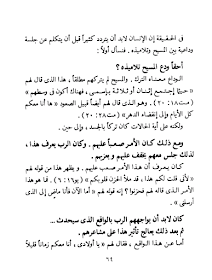 فى الحقيقة إن الإنسان لابد أن يتردد كثيراً قبل أن يتكلم عن جلسة
وداعية بين المسيح وتلاميذه ، فنسأل أولاً :
أحقاً ودع المسيح تلاميذه ؟
الوداع معناه الترك . والمسيح لم يتركهم مطلقاً ، هذا الذى قال لهم
« حيثما إجتمع إثنان أو ثلاثة بإسمى ، فهناك أكون فى وسطهم »
(مت ١٨ : ٢٠) . وهو الذى قال لهم أيضاً قبيل الصعود « ها أنا معكم
كل الأيام وإلى إنقضاء الدهر » (مت ٢٨ : ٢٠) .
ولكنه على أية الحالات كان تركاً بالجسد ، وإلى حين .
ومع ذلك كان الأمر صعباً عليهم . وكان الرب يعرف هذا ،
لذلك جلس معهم يخفف عليهم ويعزيهم .
وكما كان الأمر صعباً عليهم ، ويظهر هذا من قوله لهم
« لأنى قلت لكم هذا ، قد ملأ الحزن قلوبكم » (يو ١٦ : ٦) . فما هو هذا
الأمر الذى قاله لهم فحزنوا ؟ إنه قوله لهم « وأما الآن فأنا ماض إلى الذى
أرسلنى » .
كان لابد أن يواجههم الرب بالواقع الذى سيحدث ...
ثم بعد ذلك يعالج تأثير هذا على مشاعرهم .
أما عن هذا الواقع ، فقال لهم « يا أولادى ، أنا معكم زماناً قليلاً
٦٤